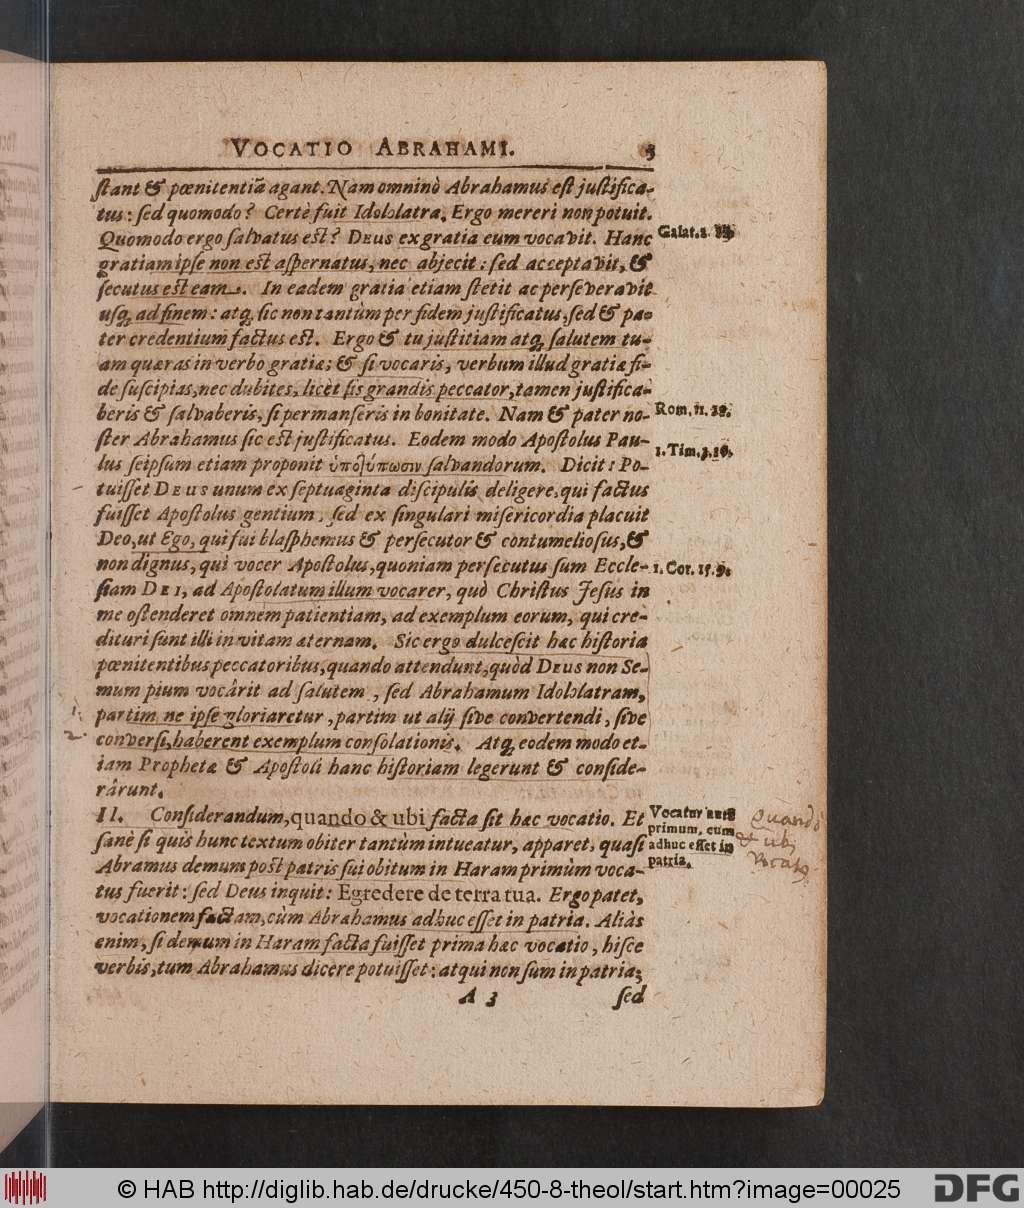 VOCATIO ABRAHAMI. 5
ſtant & pœnitentiā agant. Nam omninò Abrahamus eſt juſtifica-
tus: ſed quomodo? Certè fuit Idololatra. Ergo mereri non potuit.
Quomodo ergo ſalvatus eſt? DEUS ex gratia eum vocavit. Hanc
Galat.1.
gratiam ipſe non eſt aſpernatus, nec abjecit: ſed acceptavit, &
ſecutus eſt eam. In eadem gratia etiam ſtetit ac perſeveravit
uſq́; ad finem: atq́; ſic non tantùm per fidem juſtificatus, ſed & pa-
ter credentium factus eſt. Ergo & tu juſtitiam atq́; ſalutem tu-
am quæras in verbo gratiæ; & ſi vocaris, verbum illud gratiæ fi-
de ſuſcipias, nec dubites, licèt ſis grandis peccator, tamen juſtifica-
beris & ſalvaberis, ſi permanſeris in bonitate. Nam & pater no-
Rom. 11. 22.
ſter Abrahamus ſic eſt juſtificatus. Eodem modo Apoſtolus Pau-
1. Tim. 1. 16.
lus ſeipſum etiam proponit ὑποτύπωσιν ſalvandorum. Dicit: Po-
tuiſſet DEUS unum ex ſeptuaginta diſcipulis deligere, qui factus
fuiſſet Apoſtolus gentium, ſed ex ſingulari miſericordia placuit
Deo, ut Ego, qui fui blaſphemus & perſecutor & contumelioſus, &
non dignus, qui vocer Apoſtolus, quoniam perſecutus ſum Eccle-
1. Cor. 15. 9.
ſiam DEI, ad Apoſtolatum illum vocarer, quò Chriſtus Jeſus in
me oſtenderet omnem patientiam, ad exemplum eorum, qui cre-
dituri ſunt illi in vitam æternam. Sic ergo dulceſcit hæc hiſtoria
pœnitentibus peccatoribus, quando attendunt, quòd DEUS non Se-
mum pium vocârit ad ſalutem, ſed Abrahamum Idololatram,
1.
partim ne ipſe gloriaretur, partim ut alij ſive convertendi, ſive
2.
converſi, haberent exemplum conſolationis. Atq́; eodem modo et-
iam Prophetæ & Apoſtoli hanc hiſtoriam legerunt & conſide-
rârunt.
II. Conſiderandum, quando & ubi facta ſit hæc vocatio. Et
ſanè ſi quis hunc textum obiter tantùm intueatur, apparet, quaſi
Abramus demum poſt patris ſui obitum in Haram primùm voca-
tus fuerit: ſed Deus inquit: Egredere de terra tua. Ergo patet,
vocationem factam, cùm Abrahamus adhuc eſſet in patria. Aliàs
enim, ſi demum in Haram facta fuiſſet prima hæc vocatio, hiſce
verbis, tum Abrahamus dicere potuiſſet: atqui non ſum in patria;
Vocatur
primum, cum
adhuc eſſet in
patria.
Quando
& ubi
A 3 ſed
© HAB http://diglib.hab.de/drucke/450-8-theol/start.htm?image=00025
DFG